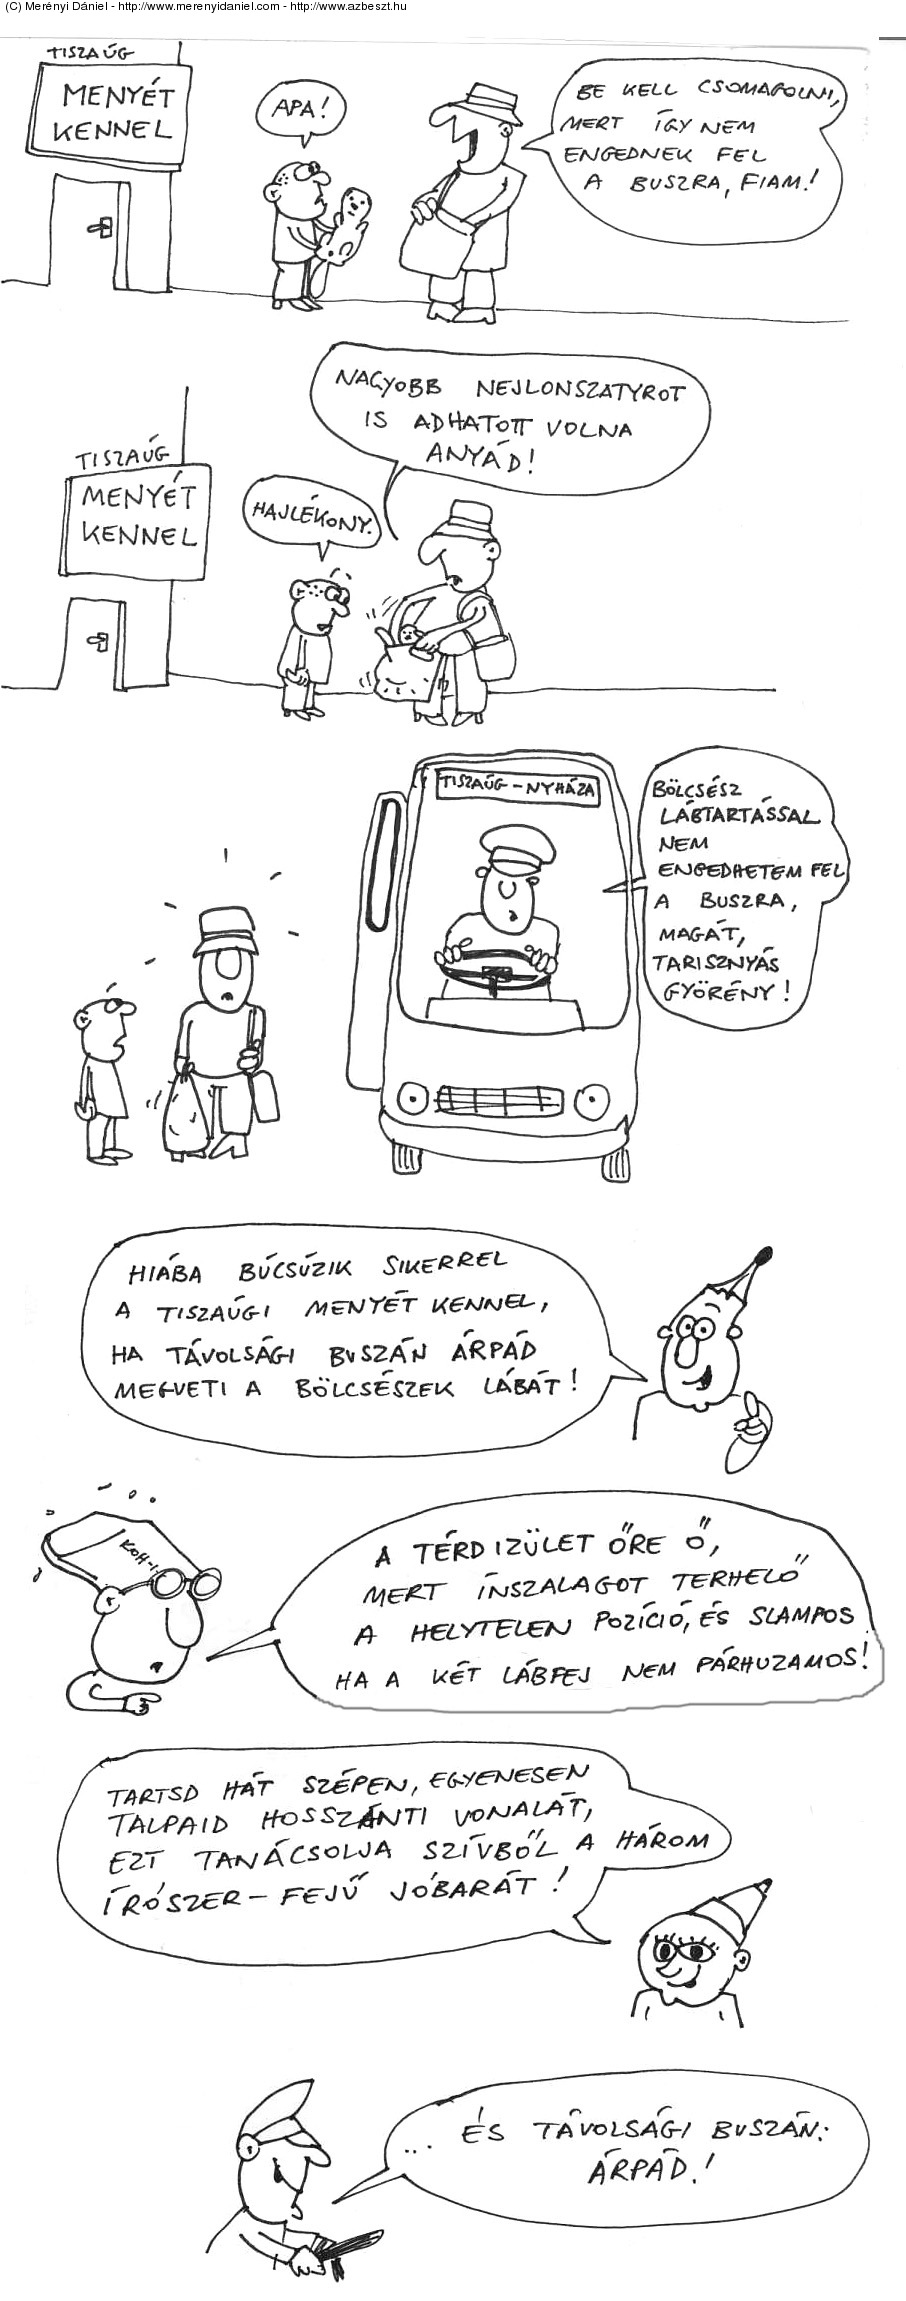 (C) Merényi Dániel - http://www.merenyidaniel.com - http://www.azbeszt.hu
TISZAÚG
MENYÉT
KENNEL
APA!
BE KELL CSOMAGOLNI,
MERT ÍGY NEM
ENGEDNEK FEL
A BUSZRA, FIAM!
NAGYOBB NEJLONSZATYROT
IS ADHATOTT VOLNA
ANYÁD!
TISZAÚG
MENYÉT
KENNEL
HAJLÉKONY.
TISZAÚG - NYHÁZA
BÖLCSÉSZ
LÁBTARTÁSSAL
NEM
ENGEDHETEM FEL
A BUSZRA,
MAGÁT,
TARISZNYÁS
GYÖRÉNY!
HIÁBA BÚCSÚZIK SIKERREL
A TISZAÚGI MENYÉT KENNEL,
HA TÁVOLSÁGI BUSZÁN ÁRPÁD
MEGVETI A BÖLCSÉSZEK LÁBÁT!
KOH-I
A TÉRDIZÜLET ŐRE Ő,
MERT ÍNSZALAGOT TERHELŐ
A HELYTELEN POZÍCIÓ, ÉS SLAMPOS
HA A KÉT LÁBFEJ NEM PÁRHUZAMOS!
TARTSD HÁT SZÉPEN, EGYENESEN
TALPAID HOSSZÁNTI VONALÁT,
EZT TANÁCSOLJA SZÍVBŐL A HÁROM
ÍRÓSZER-FEJŰ JÓBARÁT!
... ÉS TÁVOLSÁGI BUSZÁN:
ÁRPÁD!